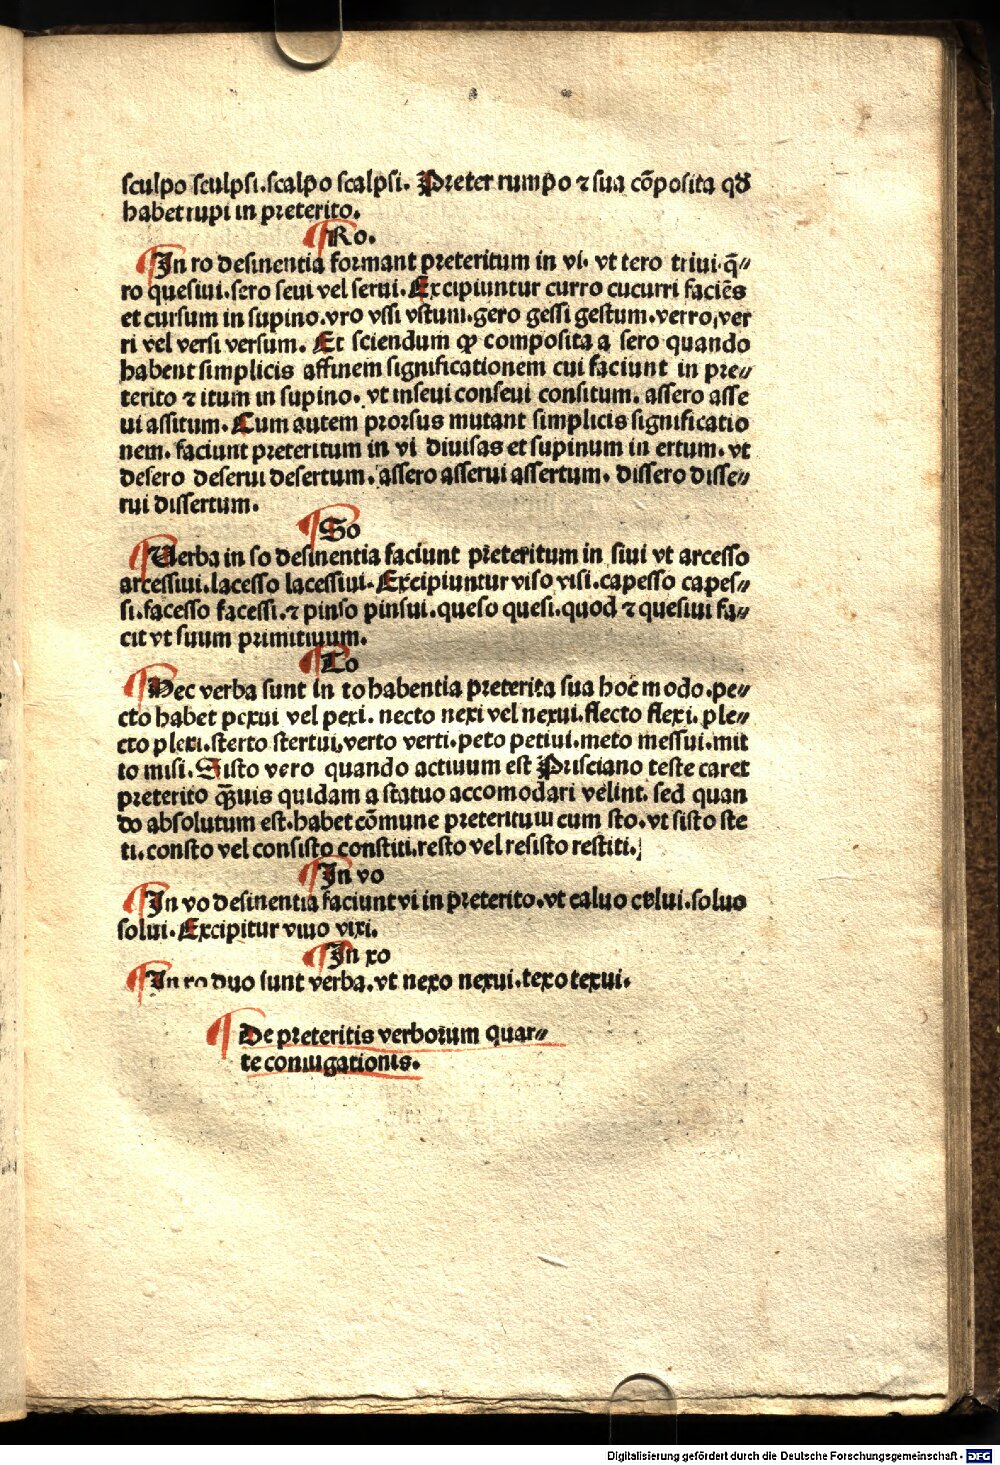 sculpo sculpsi.scalpo scalpsi. Preter rumpo ⁊ sua cōposita qđ
habet rupi in preterito.
Ro.
In ro desinentia formant preteritum in vi. vt tero triui.q̄⸗
ro quesiui.sero seui vel serui.Excipiuntur curro cucurri faciēs
et cursum in supino.vro vssi vstum.gero gessi gestum.verro,ver
ri vel versi versum. Et sciendum ꝙ composita a sero quando
habent simplicis affinem significationem cui faciunt in pre⸗
terito ⁊ itum in supino. vt inseui conseui consitum. assero asse
ui assitum.Cum autem prorsus mutant simplicis significatio
nem. faciunt preteritum in vi diuisas et supinum in ertum. vt
desero deserui desertum.assero asserui assertum. dissero disse⸗
rui dissertum.
So
Uerba in so desinentia faciunt preteritum in siui vt arcesso
arcessiui.lacesso lacessiui.Excipiuntur viso visi.capesso capes⸗
si.facesso facessi.⁊ pinso pinsui.queso quesi.quod ⁊ quesiui fa⸗
cit vt suum primitiuum.
To
Hec verba sunt in to habentia preterita sua hoc modo.pe⸗
cto habet pexui vel pexi. necto nexi vel nexui.flecto flexi. ple⸗
cto plexi.sterto stertui.verto verti.peto petiui.meto messui.mit
to misi.Sisto vero quando actiuum est Prisciano teste caret
preterito q̄uis quidam a statuo accomodari velint. sed quan
do absolutum est.habet cōmune preteritum cum sto.vt sisto ste
ti.consto vel consisto constiti.resto vel resisto restiti.
In vo
In vo desinentia faciunt vi in preterito.vt caluo calui.soluo
solui.Excipitur viuo vixi.
In xo
In xo duo sunt verba.vt nexo nexui.texo texui.
De preteritis verborum quar⸗
te coniugationis.
Digitalisierung gefördert durch die Deutsche Forschungsgemeinschaft - DFG